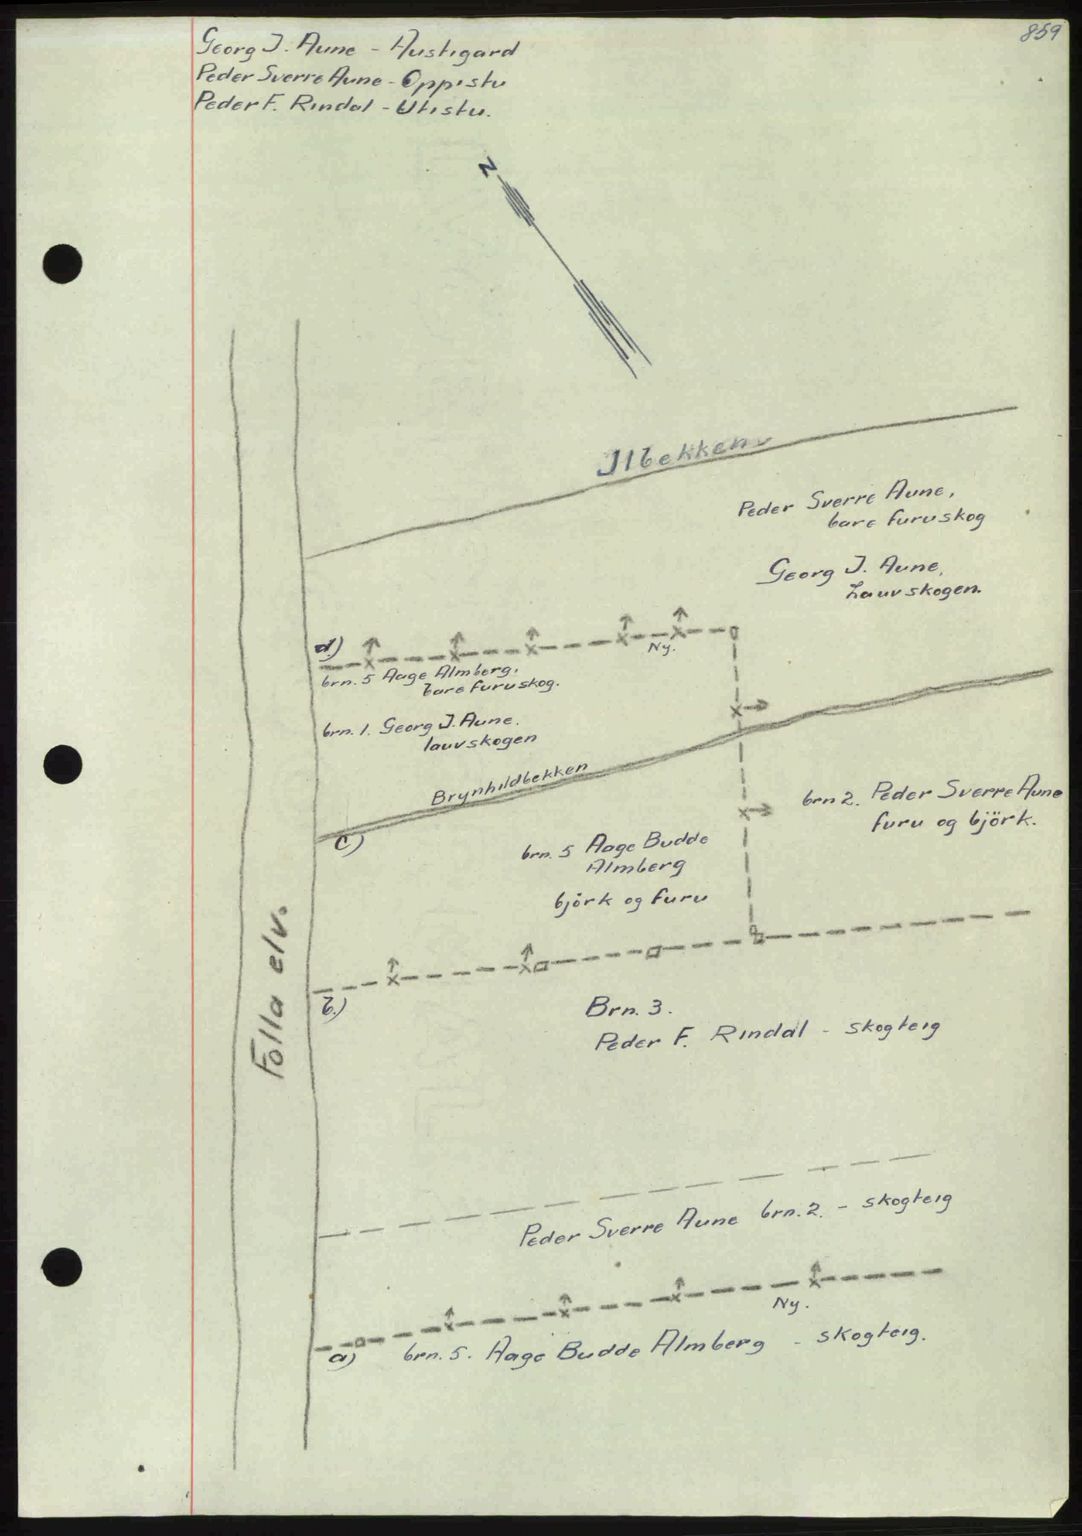 859
Georg J. Aune - Austigard
Peder Sverre Aune - Oppistu
Peder F. Rindal - Utistu.
N
Ilbekken
Peder Sverre Aune,
bare furuskog
Georg J. Aune,
Lauvskogen.
d)
Ny.
brn. 5 Aage Almberg,
bare furuskog.
brn. 1. Georg J. Aune.
lauvskogen
Brynhildbekken
c)
brn 2. Peder Sverre Aune
furu og björk.
brn. 5 Aage Budde
Almberg
björk og furu
Folla elv.
b.)
Brn. 3.
Peder F. Rindal - skogteig
Peder Sverre Aune brn. 2. - skogteig
Ny.
a)
brn. 5. Aage Budde Almberg - skogteig.